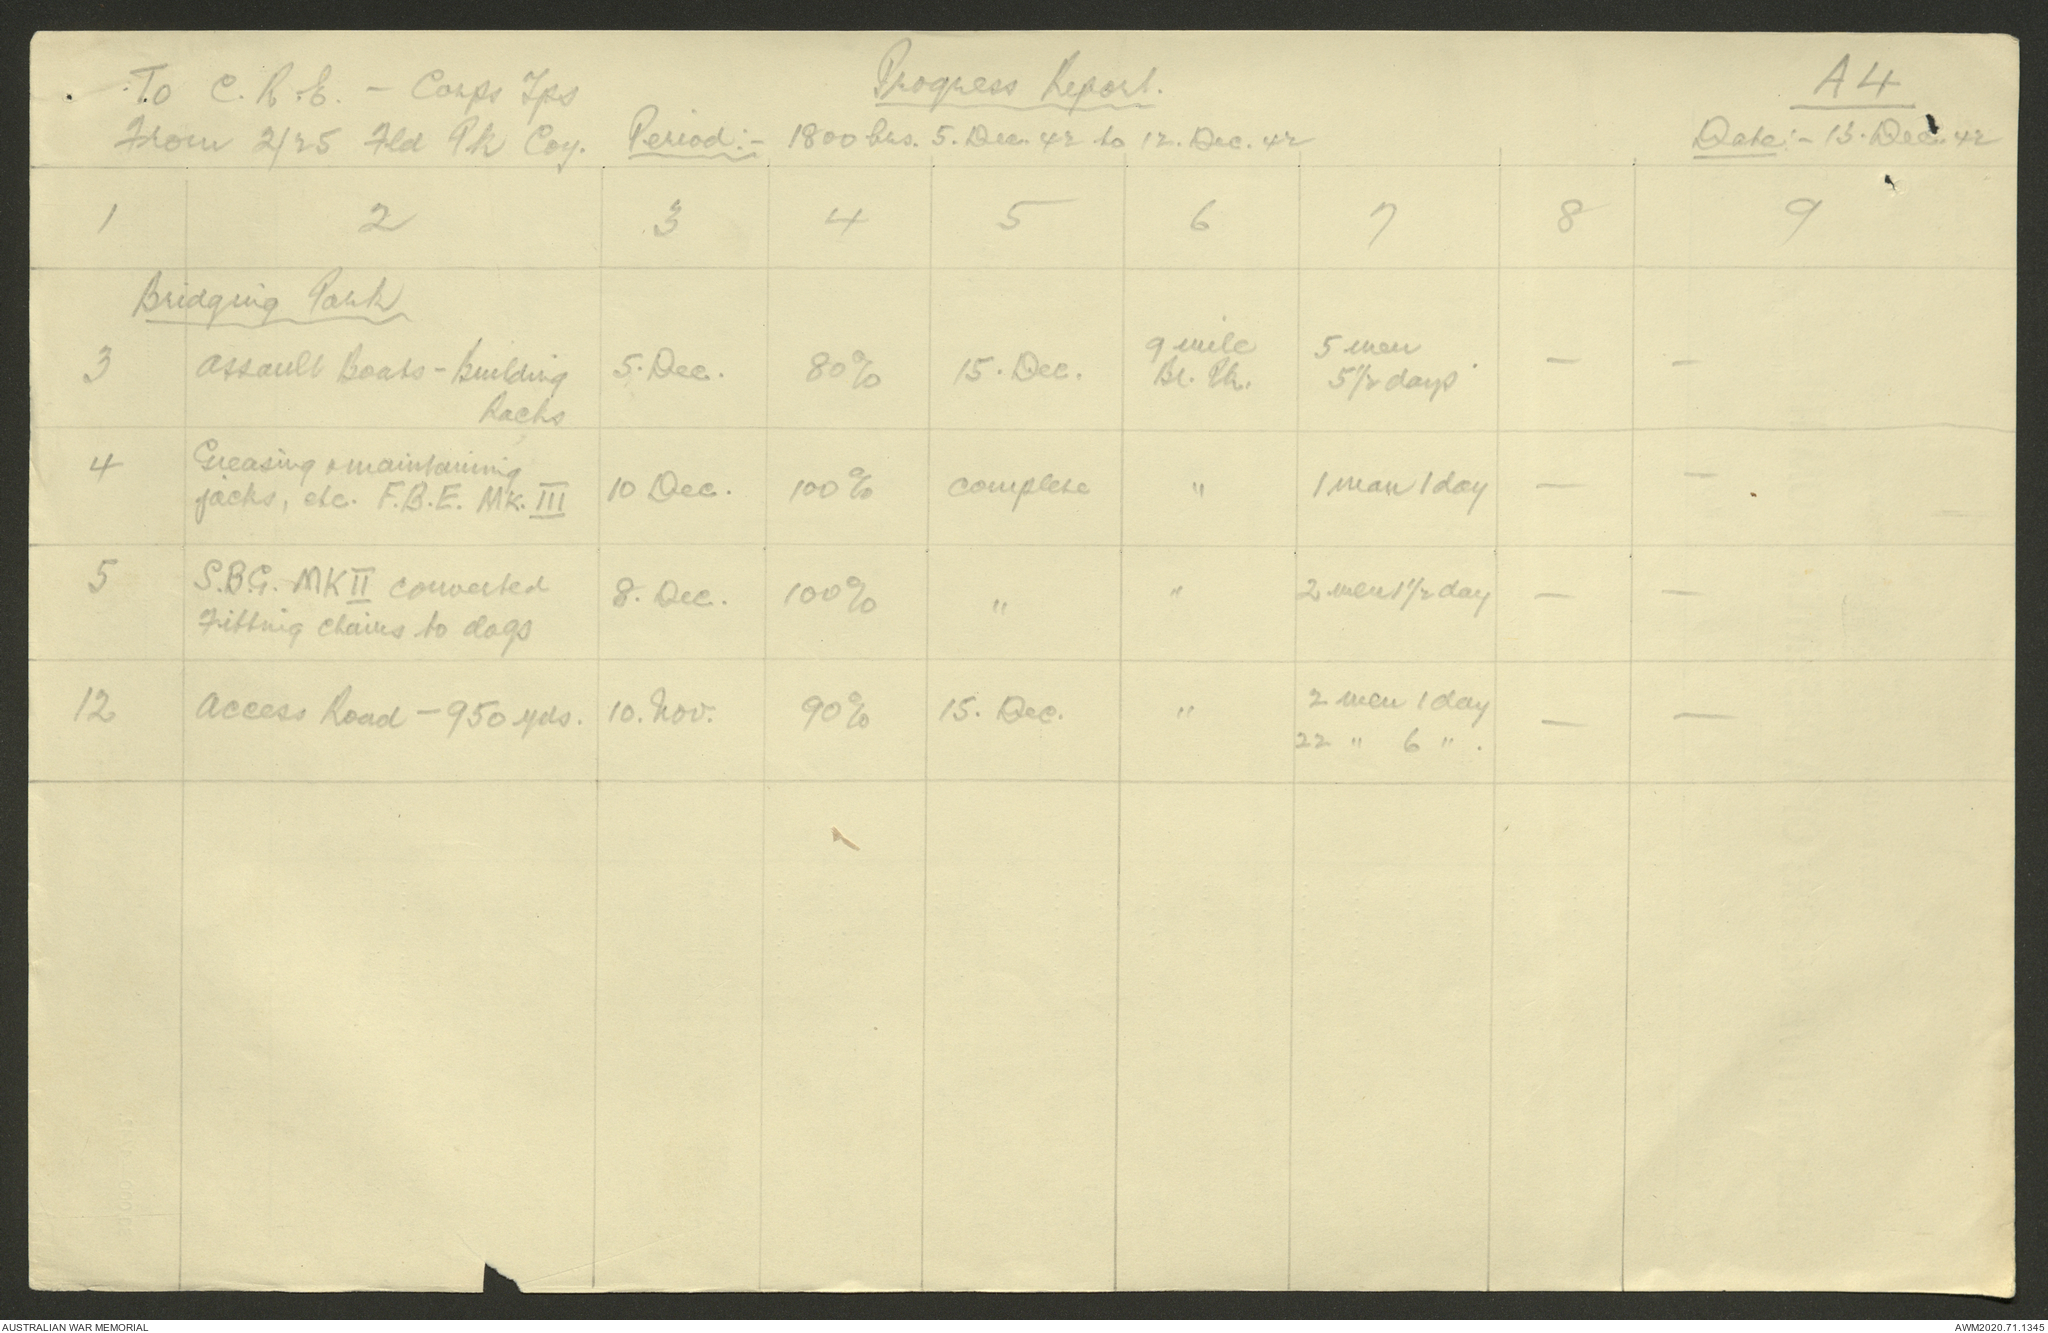 To C.R.E. - Corps Tps
Progress Report.
A4
From 2/25 Fld Pk Coy.
Period:- 1800 hrs. 5. Dec. 42 to 12. Dec. 42
Date:- 13. Dec. 42
1 2 3 4 5 6 7 8 9
Bridging Park
3 Assault Boats - Building Racks 5. Dec. 80% 15. Dec. 9 mile Br. Pk. 5 men 5 1/2 days — —
4 Greasing & maintaining jacks, etc. F.B.E. MK. III 10 Dec. 100% complete " 1 man 1 day — —
5 S.B.G. MK II converted Fitting chains to dogs 8. Dec. 100% " " 2 men 1 1/2 day — —
12 Access Road - 950 yds. 10. Nov. 90% 15. Dec. " 2 men 1 day 22 " 6 ". — —
AUSTRALIAN WAR MEMORIAL
AWM2020.71.1345